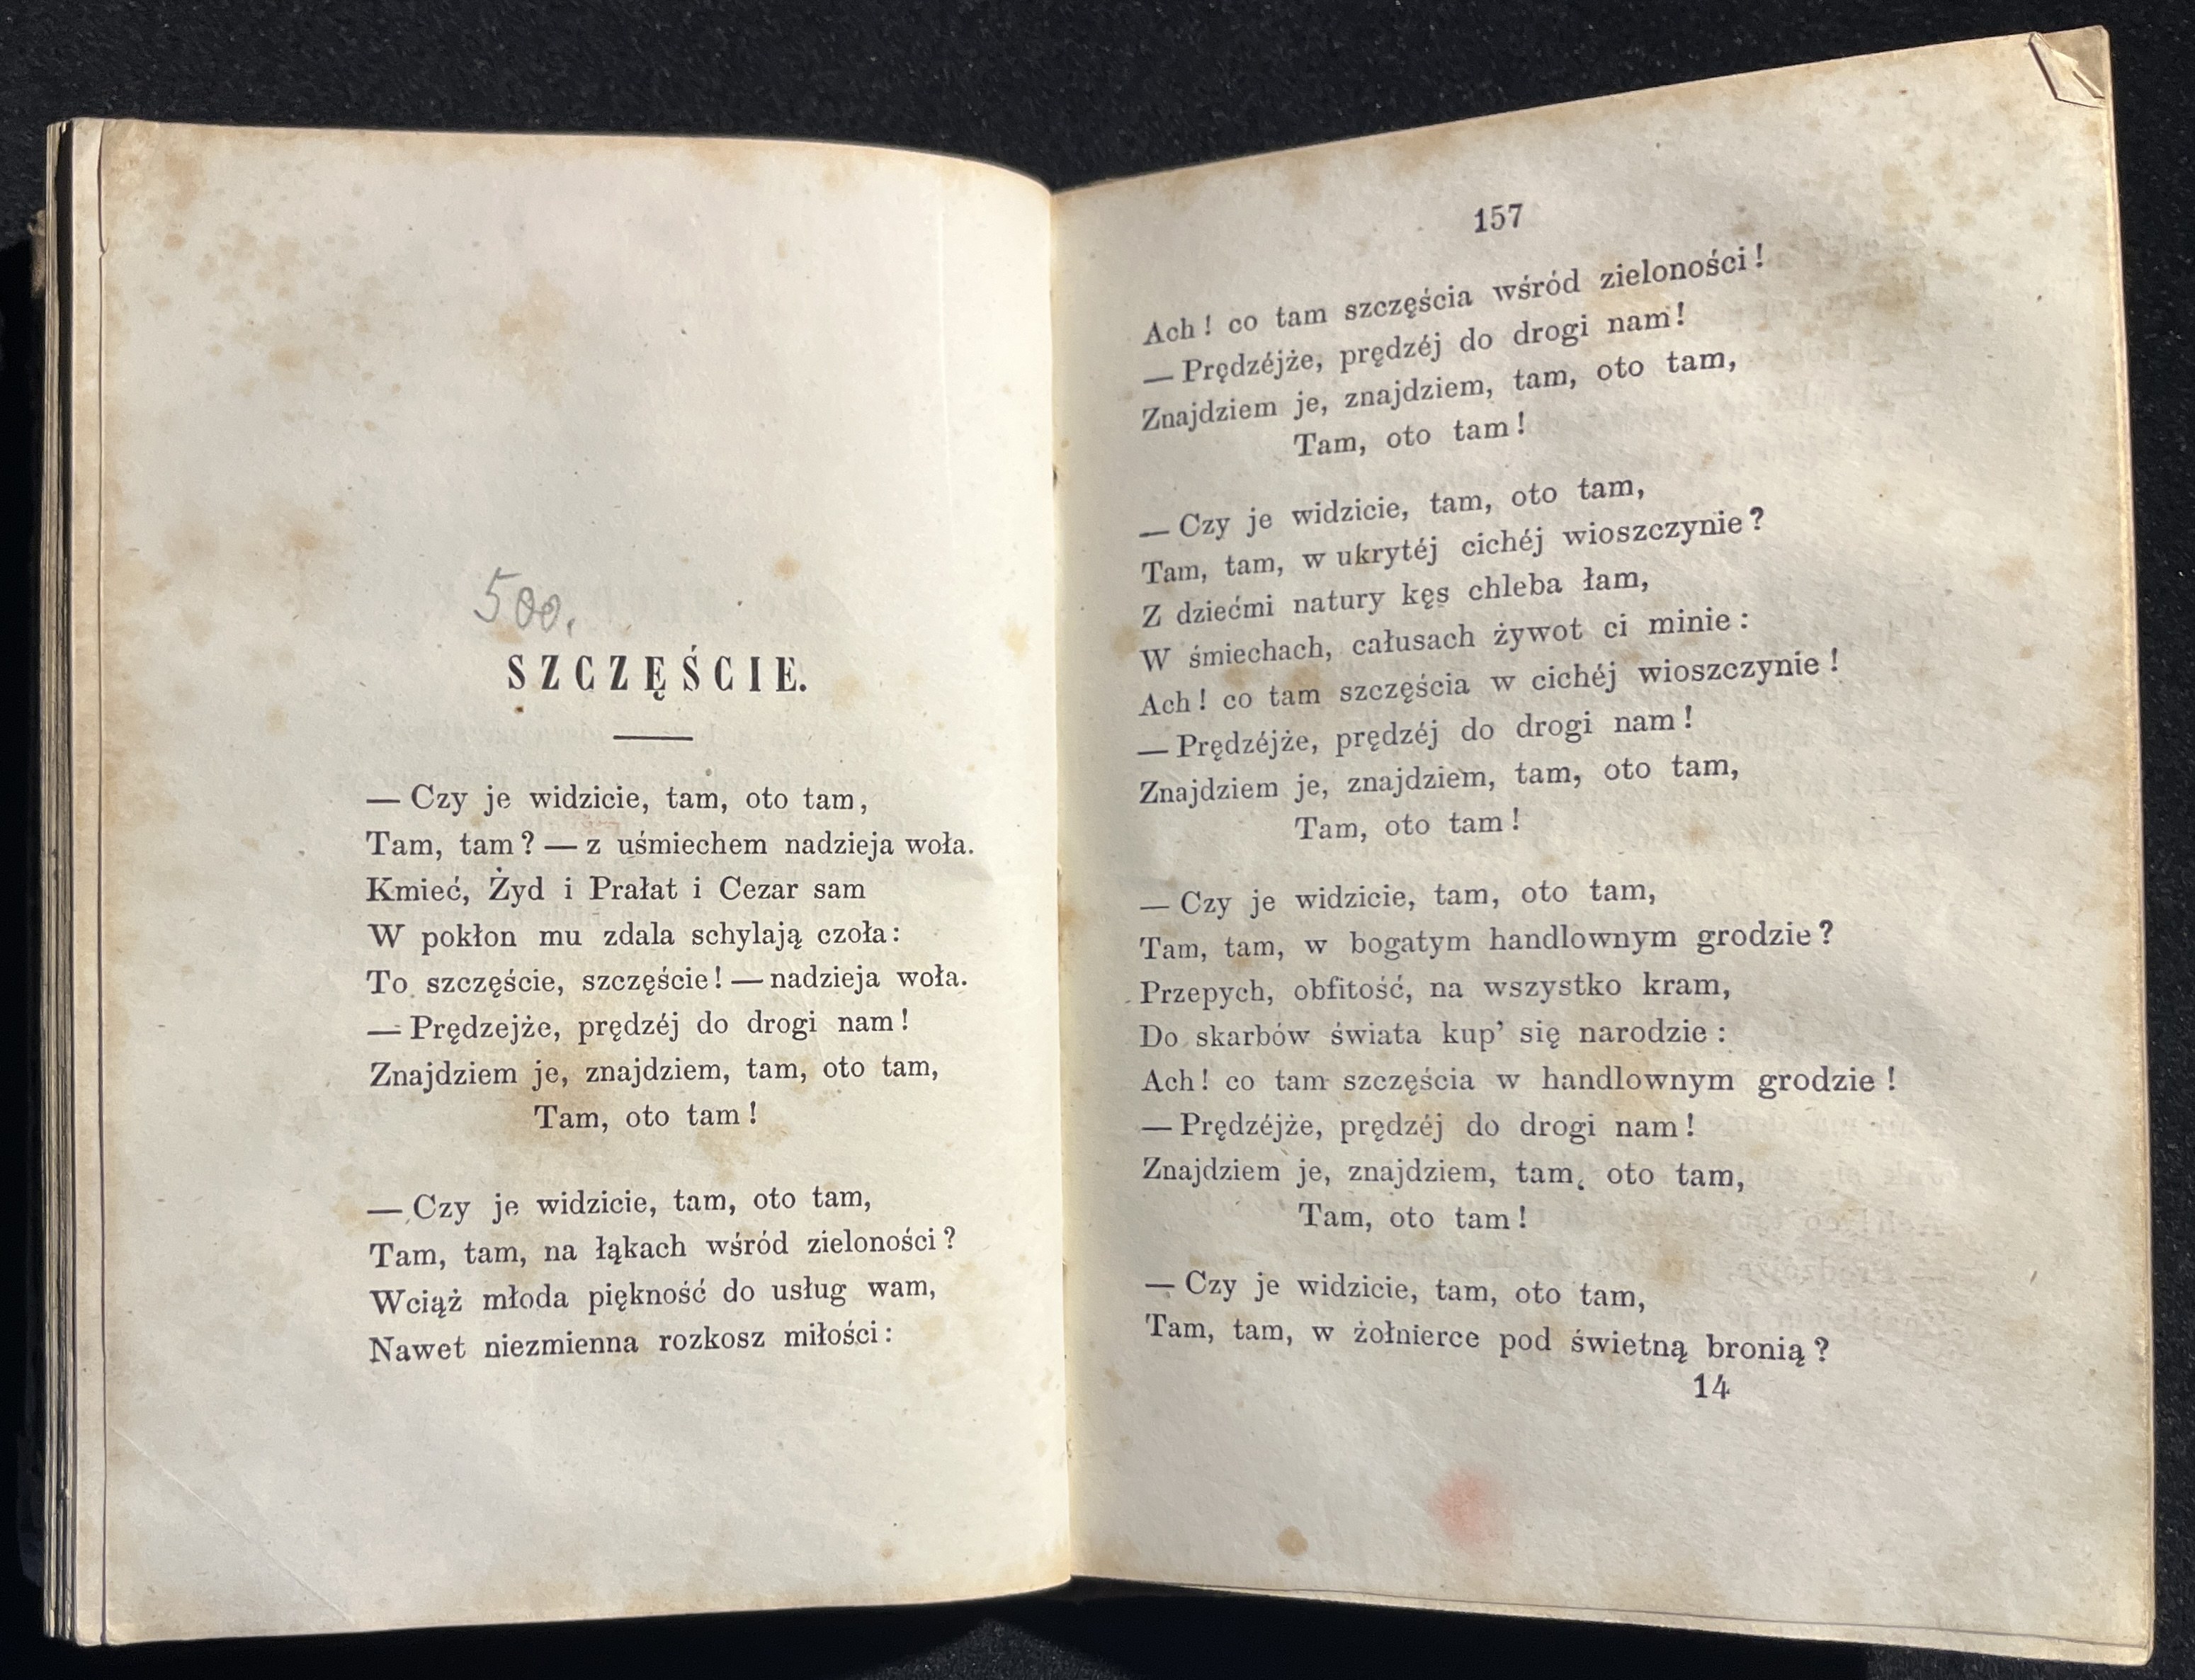 500.
SZCZĘŚCIE.
— Czy je widzicie, tam, oto tam,
Tam, tam? — z uśmiechem nadzieja woła.
Kmieć, Żyd i Prałat i Cezar sam
W pokłon mu zdala schylają czoła:
To szczęście, szczęście! — nadzieja woła.
— Prędzejże, prędzéj do drogi nam!
Znajdziem je, znajdziem, tam, oto tam,
Tam, oto tam!
— Czy je widzicie, tam, oto tam,
Tam, tam, na łąkach wśród zieloności?
Wciąż młoda piękność do usług wam,
Nawet niezmienna rozkosz miłości:
157
Ach! co tam szczęścia wśród zieloności!
— Prędzéjże, prędzéj do drogi nam!
Znajdziem je, znajdziem, tam, oto tam,
Tam, oto tam!
— Czy je widzicie, tam, oto tam,
Tam, tam, w ukrytéj cichéj wioszczynie?
Z dziećmi natury kęs chleba łam,
W śmiechach, całusach żywot ci minie:
Ach! co tam szczęścia w cichéj wioszczynie!
— Prędzéjże, prędzéj do drogi nam!
Znajdziem je, znajdziem, tam, oto tam,
Tam, oto tam!
— Czy je widzicie, tam, oto tam,
Tam, tam, w bogatym handlownym grodzie?
Przepych, obfitość, na wszystko kram,
Do skarbów świata kup' się narodzie:
Ach! co tam szczęścia w handlownym grodzie!
— Prędzéjże, prędzéj do drogi nam!
Znajdziem je, znajdziem, tam, oto tam,
Tam, oto tam!
— Czy je widzicie, tam, oto tam,
Tam, tam, w żołnierce pod świetną bronią?
14